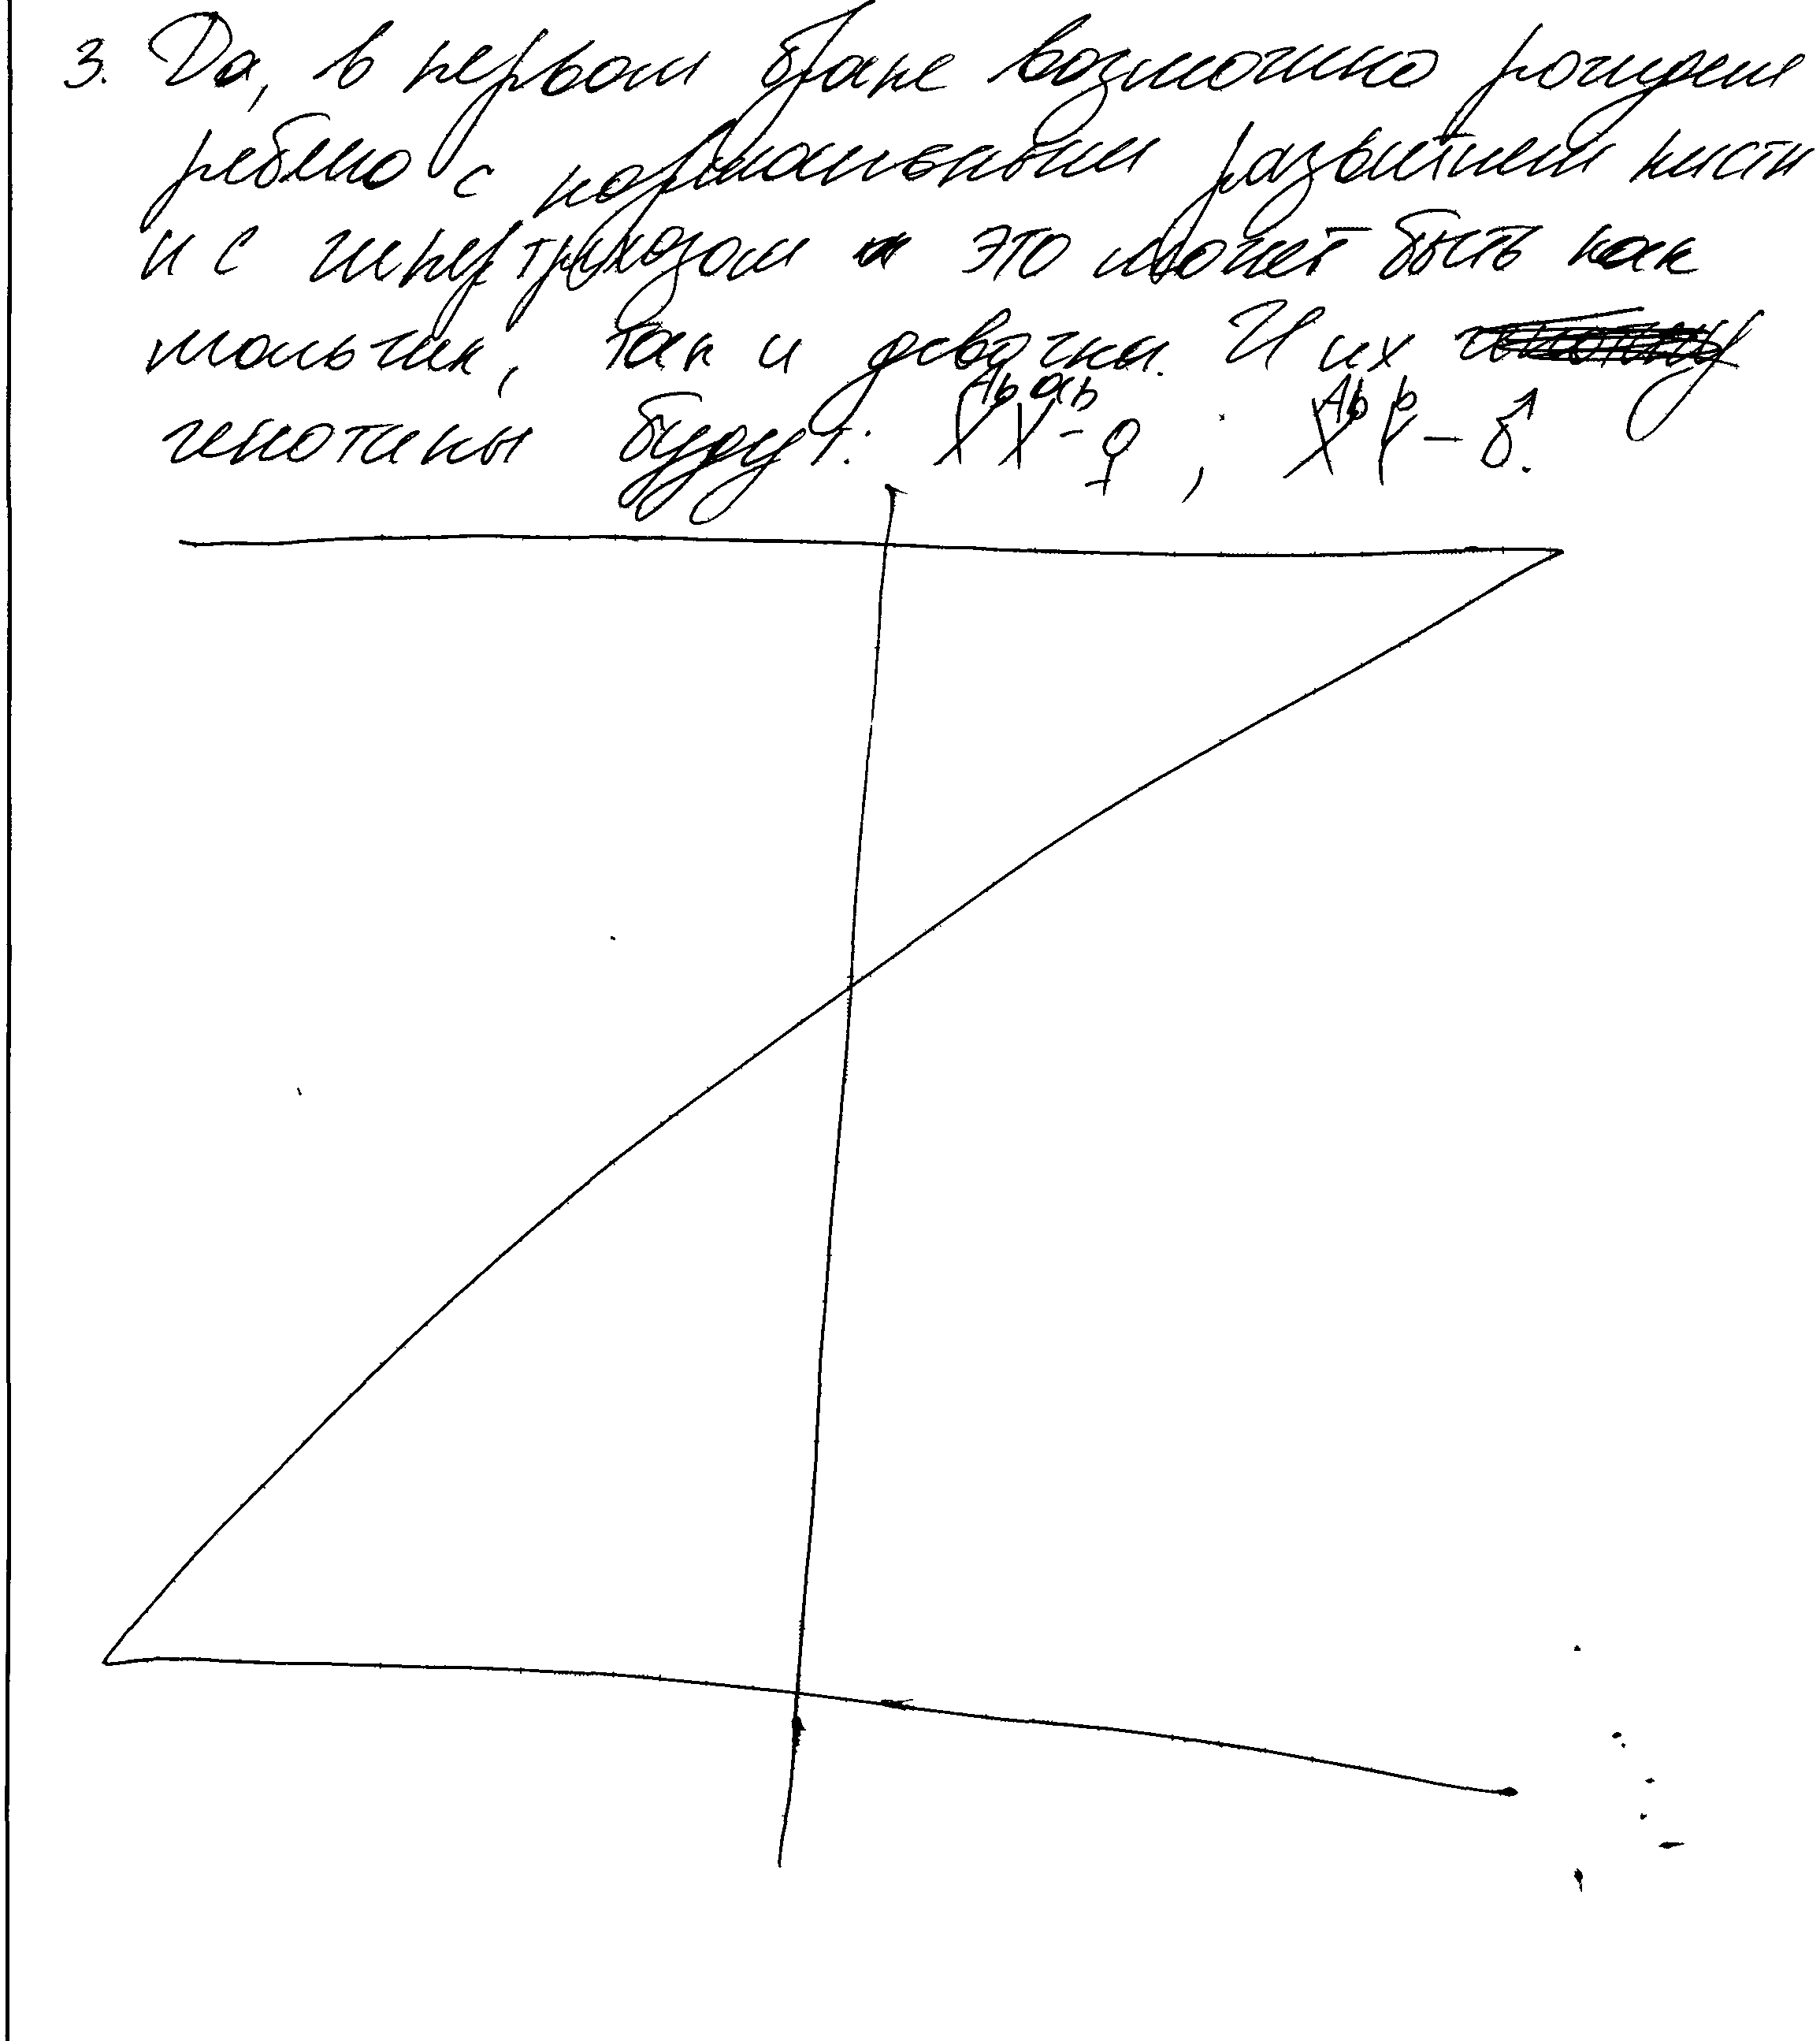 3. Да, в первом браке возможно рожден
ребено с нормальным развитием кисти
и с гипертрихозом и это может быть как
мальчик, так и девочка. И их
генотипы будут: X^Ab X^ab - ♀ ; X^Ab Y^b - ♂.